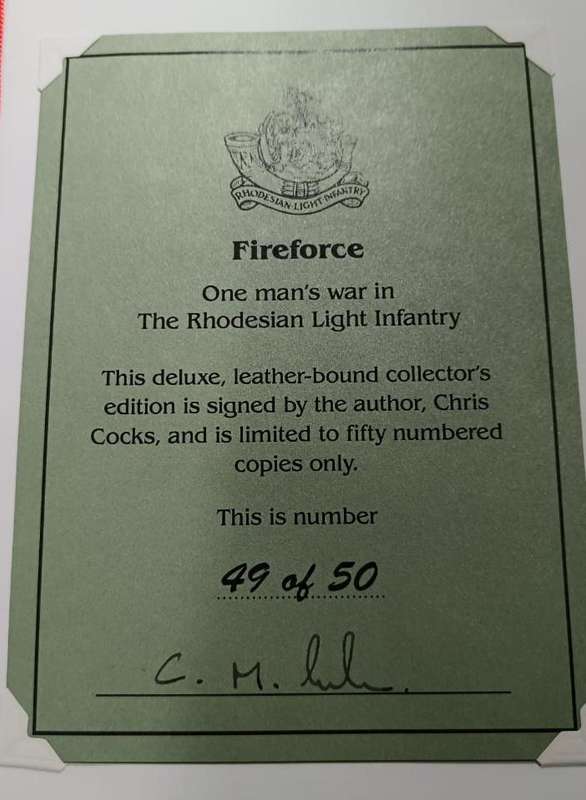 RHODESIAN·LIGHT·INFANTRY
Fireforce
One man's war in
The Rhodesian Light Infantry
This deluxe, leather-bound collector's
edition is signed by the author, Chris
Cocks, and is limited to fifty numbered
copies only.
This is number
49 of 50
C. M.